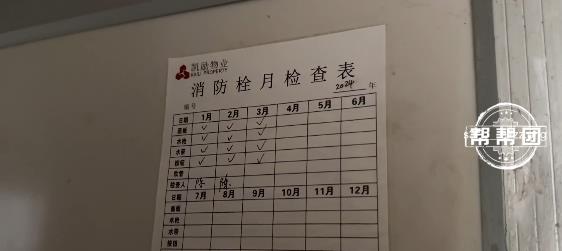 凯励物业
KAILI PROPERTY
消防栓月检查表
编号 2024 年
日期 1月 2月 3月 4月 5月 6月
盖板 ✓ ✓ ✓
水枪 ✓ ✓ ✓
水带 ✓ ✓ ✓
按钮 ✓ ✓ ✓
软管
检查人 陈
日期 7月 8月 9月 10月 11月 12月
盖板
水枪
水带
按钮
帮帮团